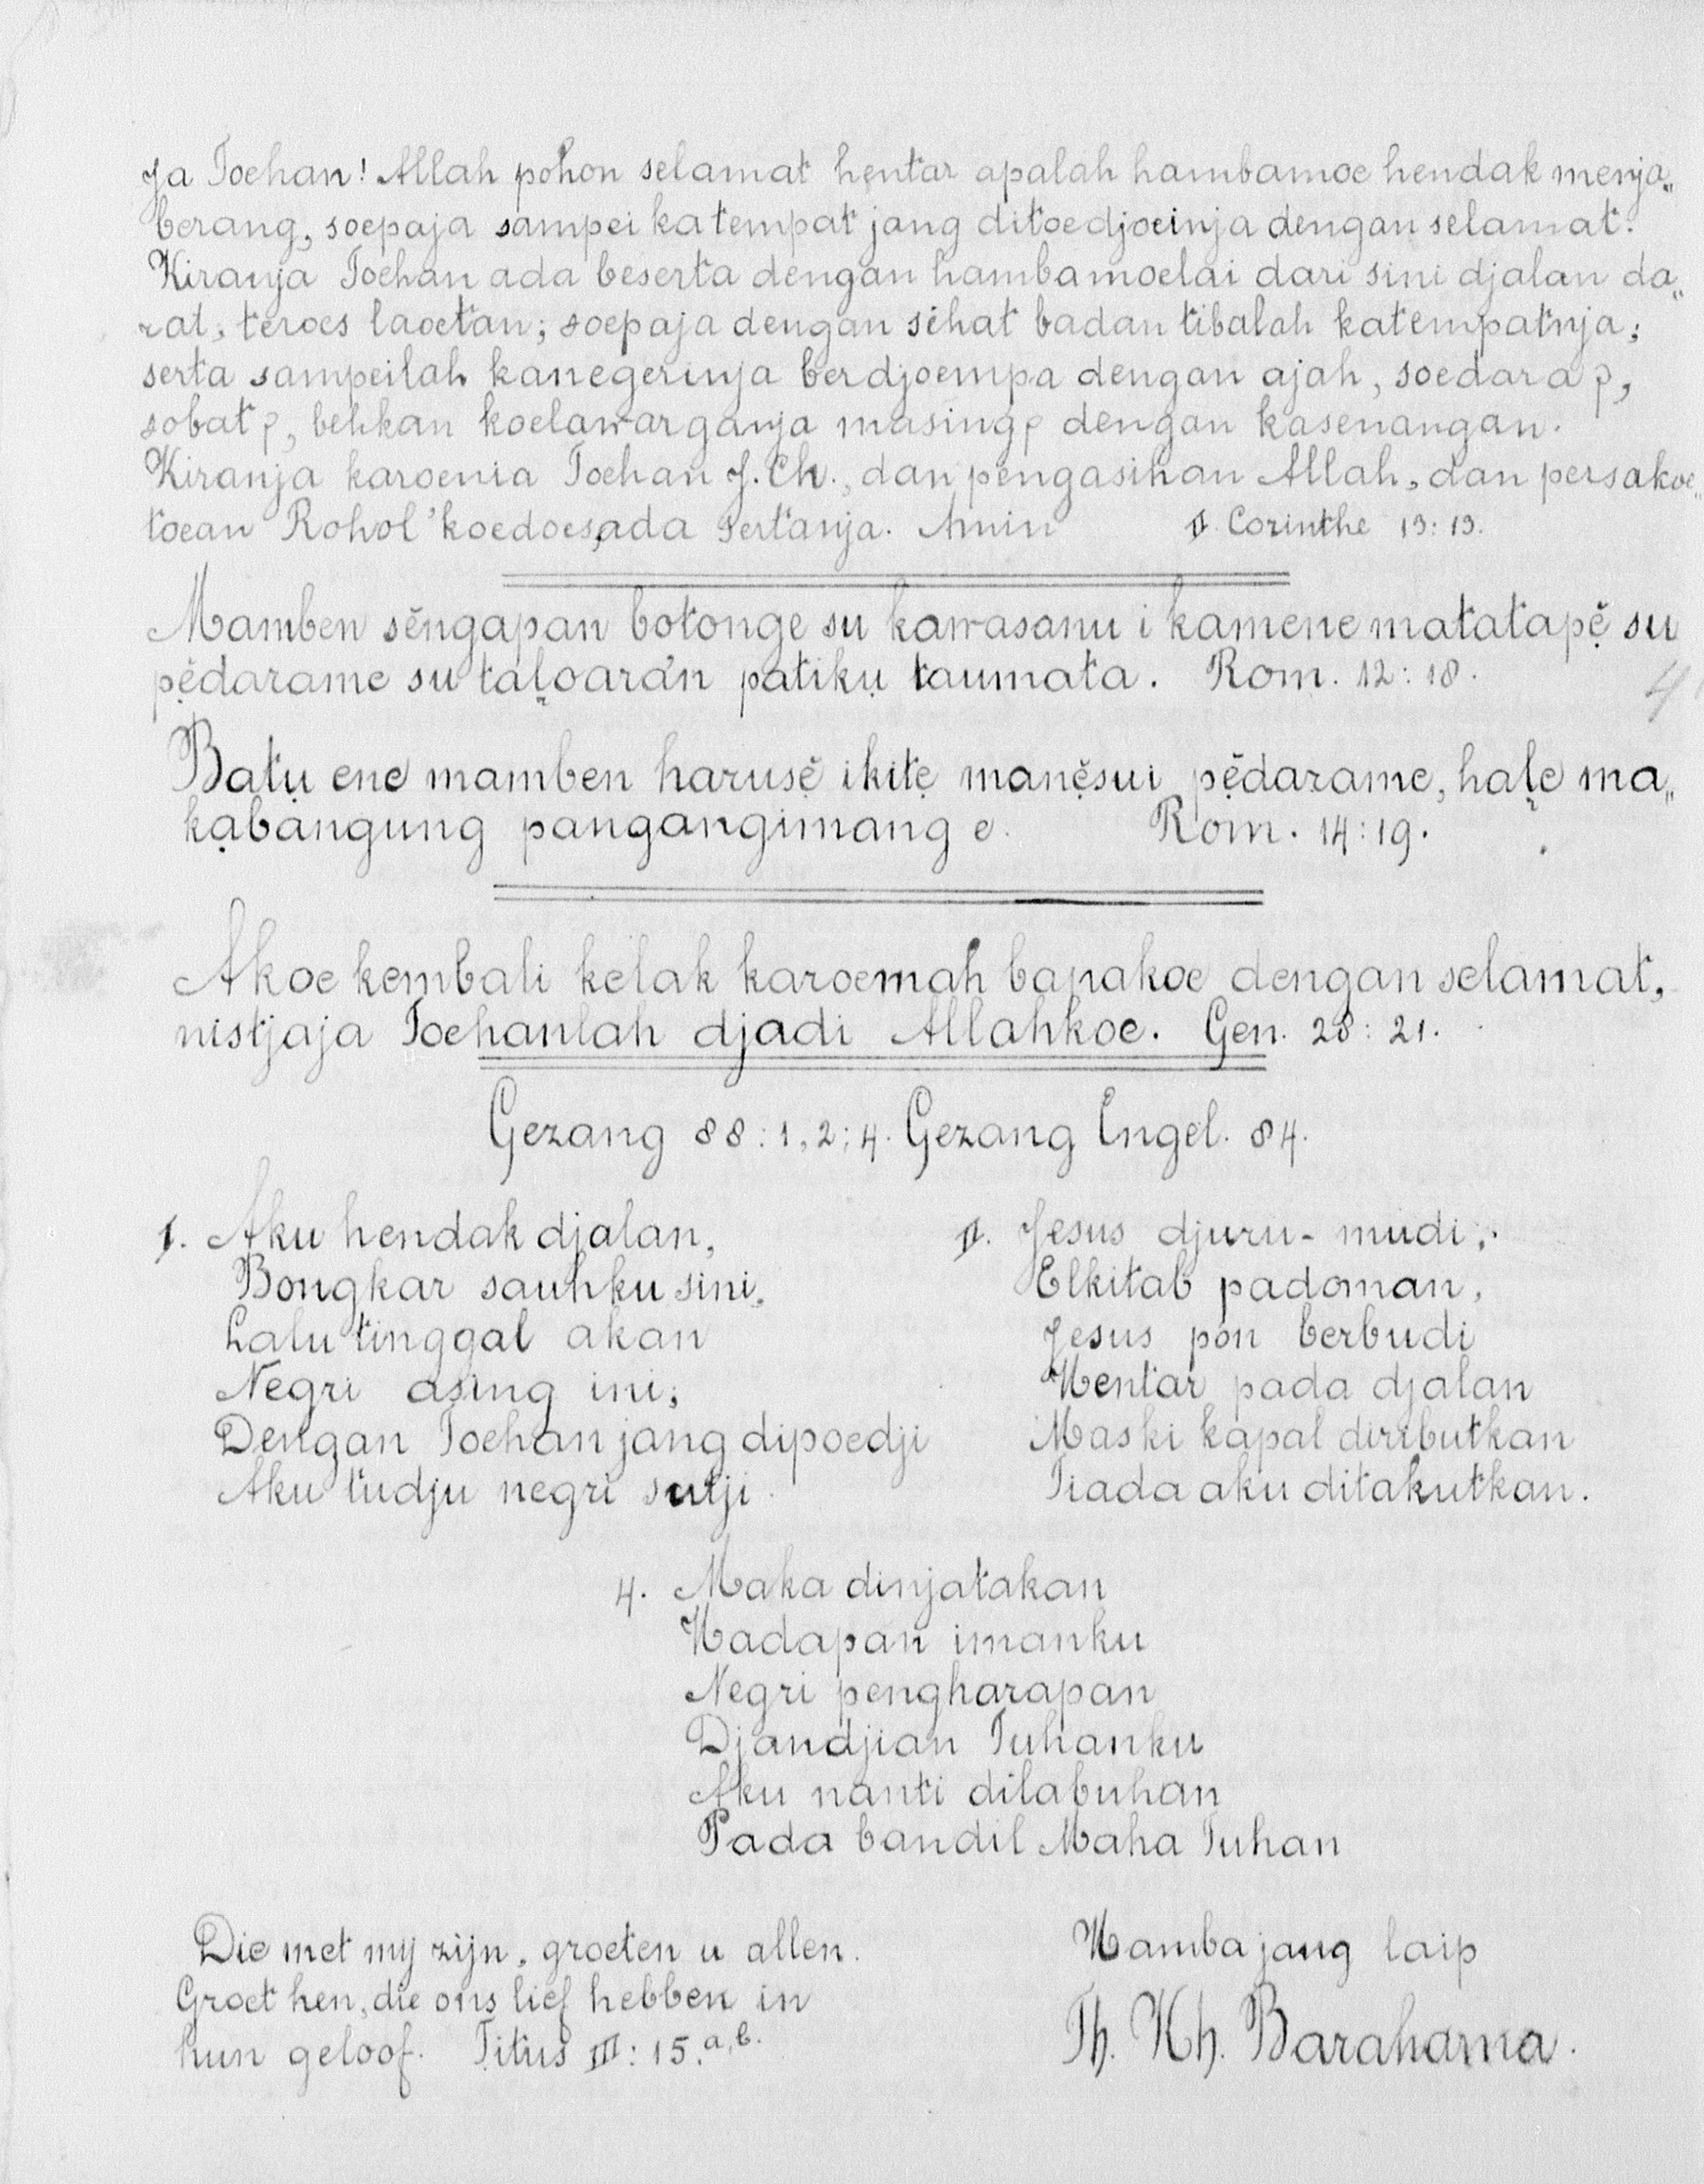 Ja Toehan! Allah pohon selamat hentar apalah hambamoe hendak menja„
berang, soepaja sampei katempat jang ditoedjoeinja dengan selamat.
Kiranja Toehan ada beserta dengan hambamoelai dari sini djalan da„
rat, teroes laoetan; soepaja dengan sehat badan tibalah katempatnja;
serta sampeilah kanegerinja berdjoempa dengan ajah, soedara2,
sobat2, behkan koelawarganja masing2 dengan kasenangan.
Kiranja karoenia Toehan J. Ch., dan pengasihan Allah, dan persakoe„
toean Rohol'koedoes, ada sertanja. Amin II Corinthe 13:13.
Mamben sĕngapan botonge su kawasanu i kamene matatapẹ̆ su
pẹ̆darame su taḷoarán patikụ taumata. Rom. 12:18.
Batụ ene mamben harusẹ̆ ikitẹ manẹ̆sui pẹ̆darame, haḷe ma„
kạbangung pangangimang e. Rom. 14:19.
Akoe kembali kelak karoemah bapakoe dengan selamat,
nistjaja Toehanlah djadi Allahkoe. Gen. 28:21.
Gezang 88:1,2;4. Gezang Engel. 84.
I. Aku hendak djalan,
Bongkar sauhku sini,
Lalu tinggal akan
Negri asing ini;
Dengan Toehan jang dipoedji
Aku tudju negri sutji.
II. Jesus djuru-mudi;
Elkitab padoman,
Jesus pon berbudi
Hentar pada djalan
Maski kapal diributkan
Tiada aku ditakutkan.
4. Maka dinjatakan
Hadapan imanku
Negri pengharapan
Djandjian Tuhanku
Aku nanti dilabuhan
Pada bandil Maha Tuhan
Die met mij zijn, groeten u allen.
Groet hen, die ons lief hebben in
hun geloof. Titus III:15.a,b.
Hamba jang laip
Th. Kh. Barahama.